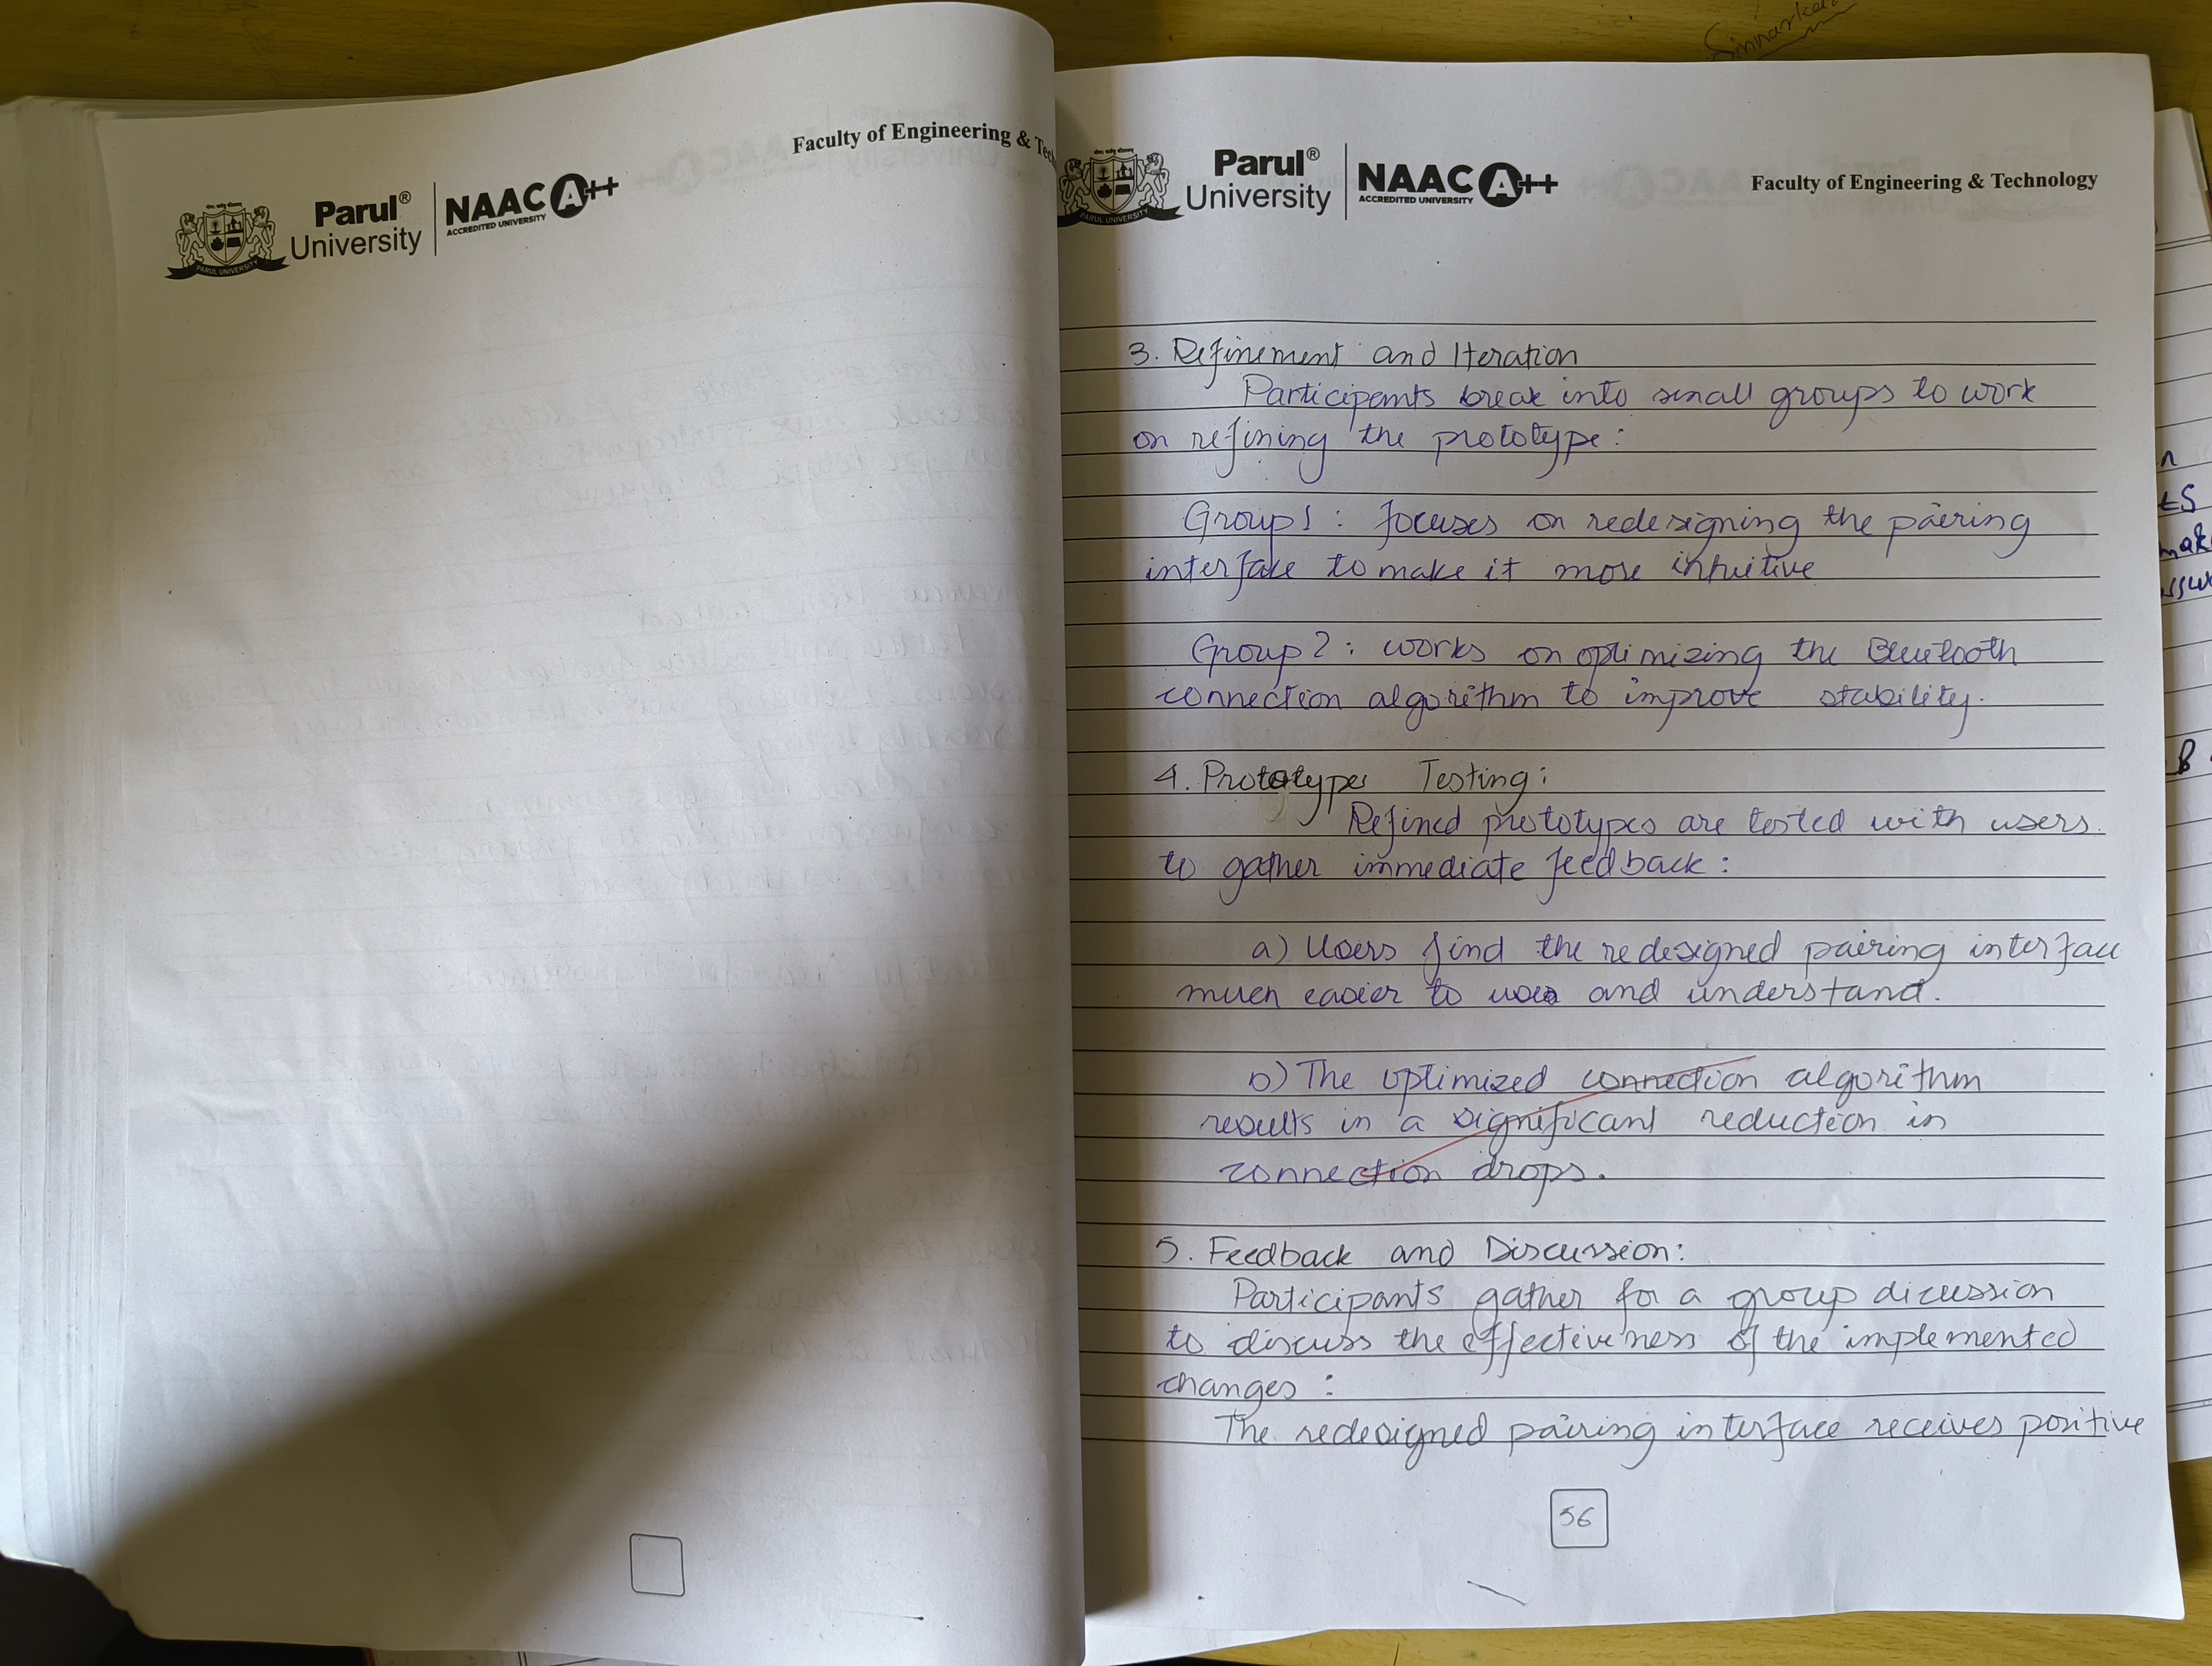 Sinnarkar
Faculty of Engineering & Tech
Parul® University
NAAC A++
ACCREDITED UNIVERSITY
PARUL UNIVERSITY
Parul® University
NAAC A++
ACCREDITED UNIVERSITY
PARUL UNIVERSITY
Faculty of Engineering & Technology
3. Refinement and Iteration
Participants break into small groups to work
on refining the prototype:
Group 1: focuses on redesigning the pairing
interface to make it more intuitive
Group 2: works on optimizing the Bluetooth
connection algorithm to improve stability.
4. Prototypes Testing:
Refined prototypes are tested with users
to gather immediate feedback:
a) Users find the redesigned pairing interface
much easier to use and understand.
b) The optimized connection algorithm
results in a significant reduction in
connection drops.
5. Feedback and Discussion:
Participants gather for a group dicussion
to discuss the effectiveness of the implemented
changes:
The redesigned pairing interface receives positive
56